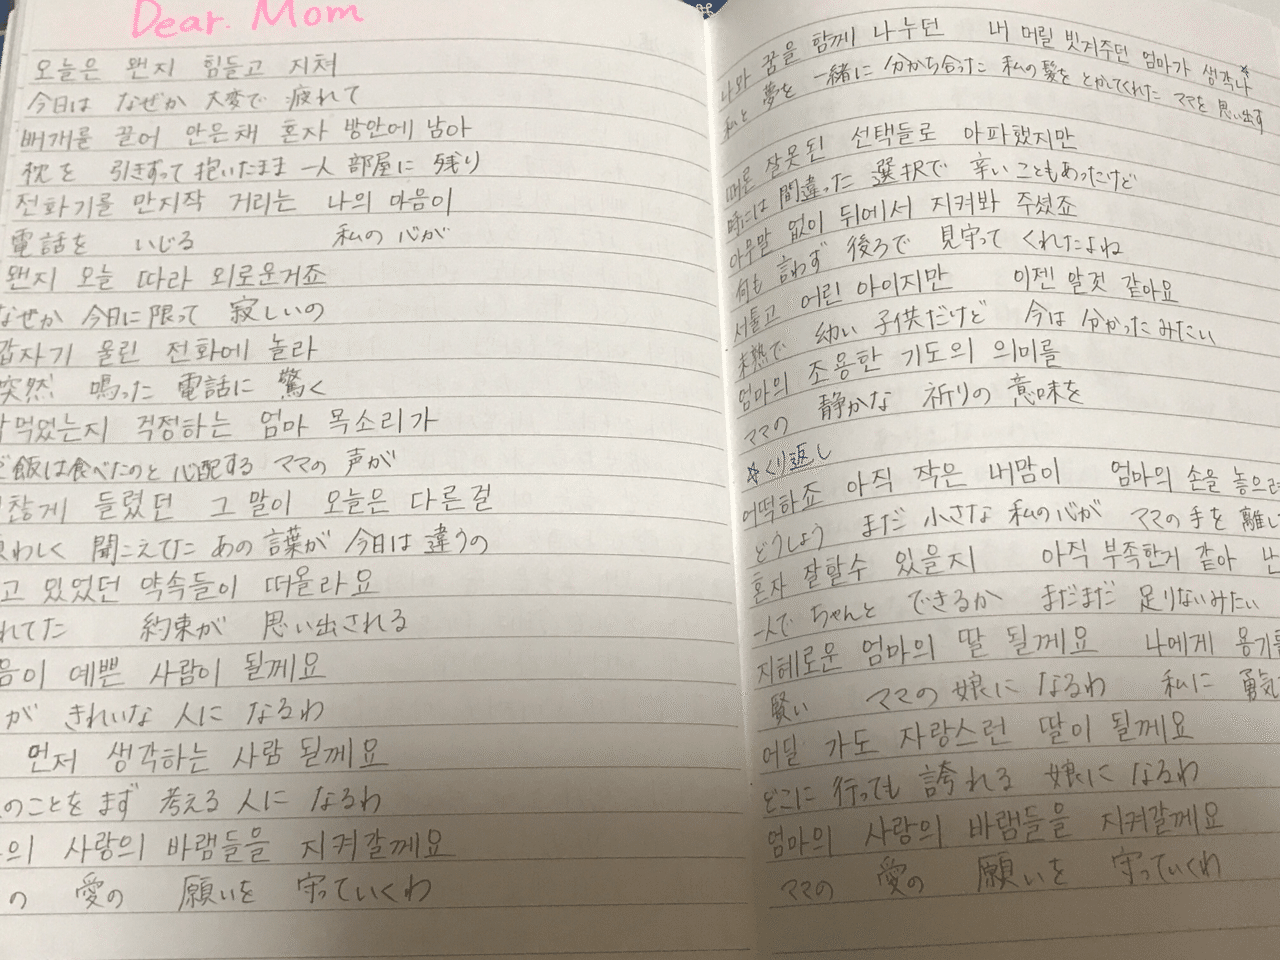 Dear. Mom
오늘은 왠지 힘들고 지쳐
今日は なぜか 大変で 疲れて
배개를 끌어 안은채 혼자 방안에 남아
枕を 引きずって抱いたまま 一人 部屋に 残り
전화기를 만지작 거리는 나의 마음이
電話を いじる 私の 心が
왠지 오늘 따라 외로운거죠
なぜか 今日に限って 寂しいの
갑자기 울린 전화에 놀라
突然 鳴った 電話に 驚く
먹었는지 걱정하는 엄마 목소리가
ご飯は食べたのと 心配する ママの 声が
찮게 들렸던 그 말이 오늘은 다른걸
わしく 聞こえてた あの 言葉が 今日は 違うの
고 있었던 약속들이 떠올라요
れてた 約束が 思い出される
음이 예쁜 사람이 될께요
が きれいな 人に なるわ
먼저 생각하는 사람 될께요
のことを まず 考える 人に なるわ
의 사랑의 바램들을 지켜갈께요
の 愛の 願いを 守っていくわ
나와 꿈을 함께 나누던 내 머릴 빗겨주던 엄마가 생각나
私と 夢を 一緒に 分かち合った 私の 髪を とかしてくれた ママを 思い出す
때론 잘못된 선택들로 아파했지만
時には 間違った 選択で 辛いこともあったけど
아무말 없이 뒤에서 지켜봐 주셨죠
何も 言わず 後ろで 見守って くれたよね
서툴고 어린 아이지만 이젠 알것 같아요
未熟で 幼い 子供だけど 今は 分かったみたい
엄마의 조용한 기도의 의미를
ママの 静かな 祈りの 意味を
☆くり返し
어떡하죠 아직 작은 내맘이 엄마의 손을 놓으려
どうしよう まだ 小さな 私の心が ママの 手を 離し
혼자 잘할수 있을지 아직 부족한게 같아 난
一人で ちゃんと できるか まだまだ 足りないみたい
지혜로운 엄마의 딸 될께요 나에게 용기를
賢い ママの 娘に なるわ 私に 勇気
어딜 가도 자랑스런 딸이 될께요
どこに 行っても 誇れる 娘に なるわ
엄마의 사랑의 바램들을 지켜갈께요
ママの 愛の 願いを 守っていくわ